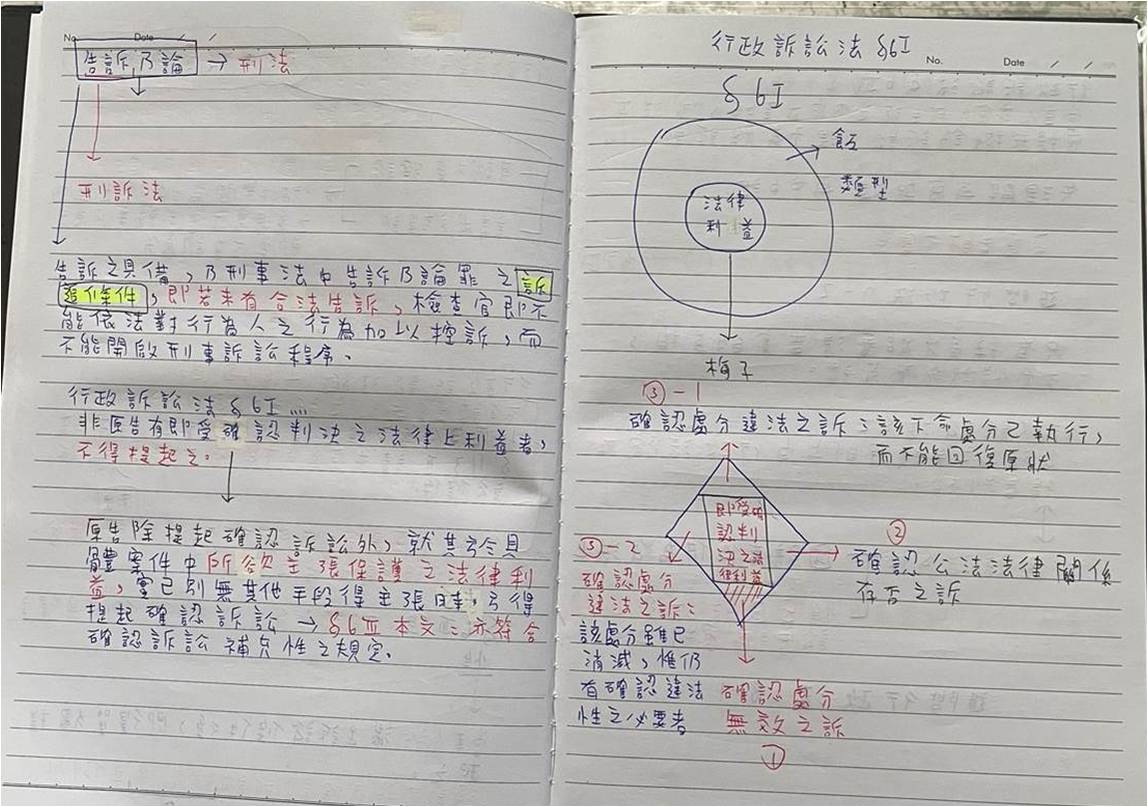 No.
Date / /
告訴乃論 → 刑法
刑訴法
告訴之具備，乃刑事法中告訴乃論罪之訴
追條件，即若未有合法告訴，檢查官即不
能依法對行為人之行為加以控訴，而
不能開啟刑事訴訟程序。
行政訴訟法§6I....
非原告有即受確認判決之法律上利益者，
不得提起之。
原告除提起確認訴訟外，就其於具
體案件中所欲主張保護之法律利
益，實已別無其他手段得主張時，方得
提起確認訴訟 → §6Ⅲ本文：亦符合
確認訴訟補充性之規定。
行政訴訟法 §6I
No.
Date / /
§6I
飯
類型
法律
利益
梅子
③-1
確認處分違法之訴：該下命處分已執行，
而不能回復原狀
即受確
認判
決之法
律利益
②
確認公法法律關係
存否之訴
③-2
確認處分
違法之訴：
該處分雖已
消滅，惟仍
有確認違法
性之必要者
確認處分
無效之訴
①